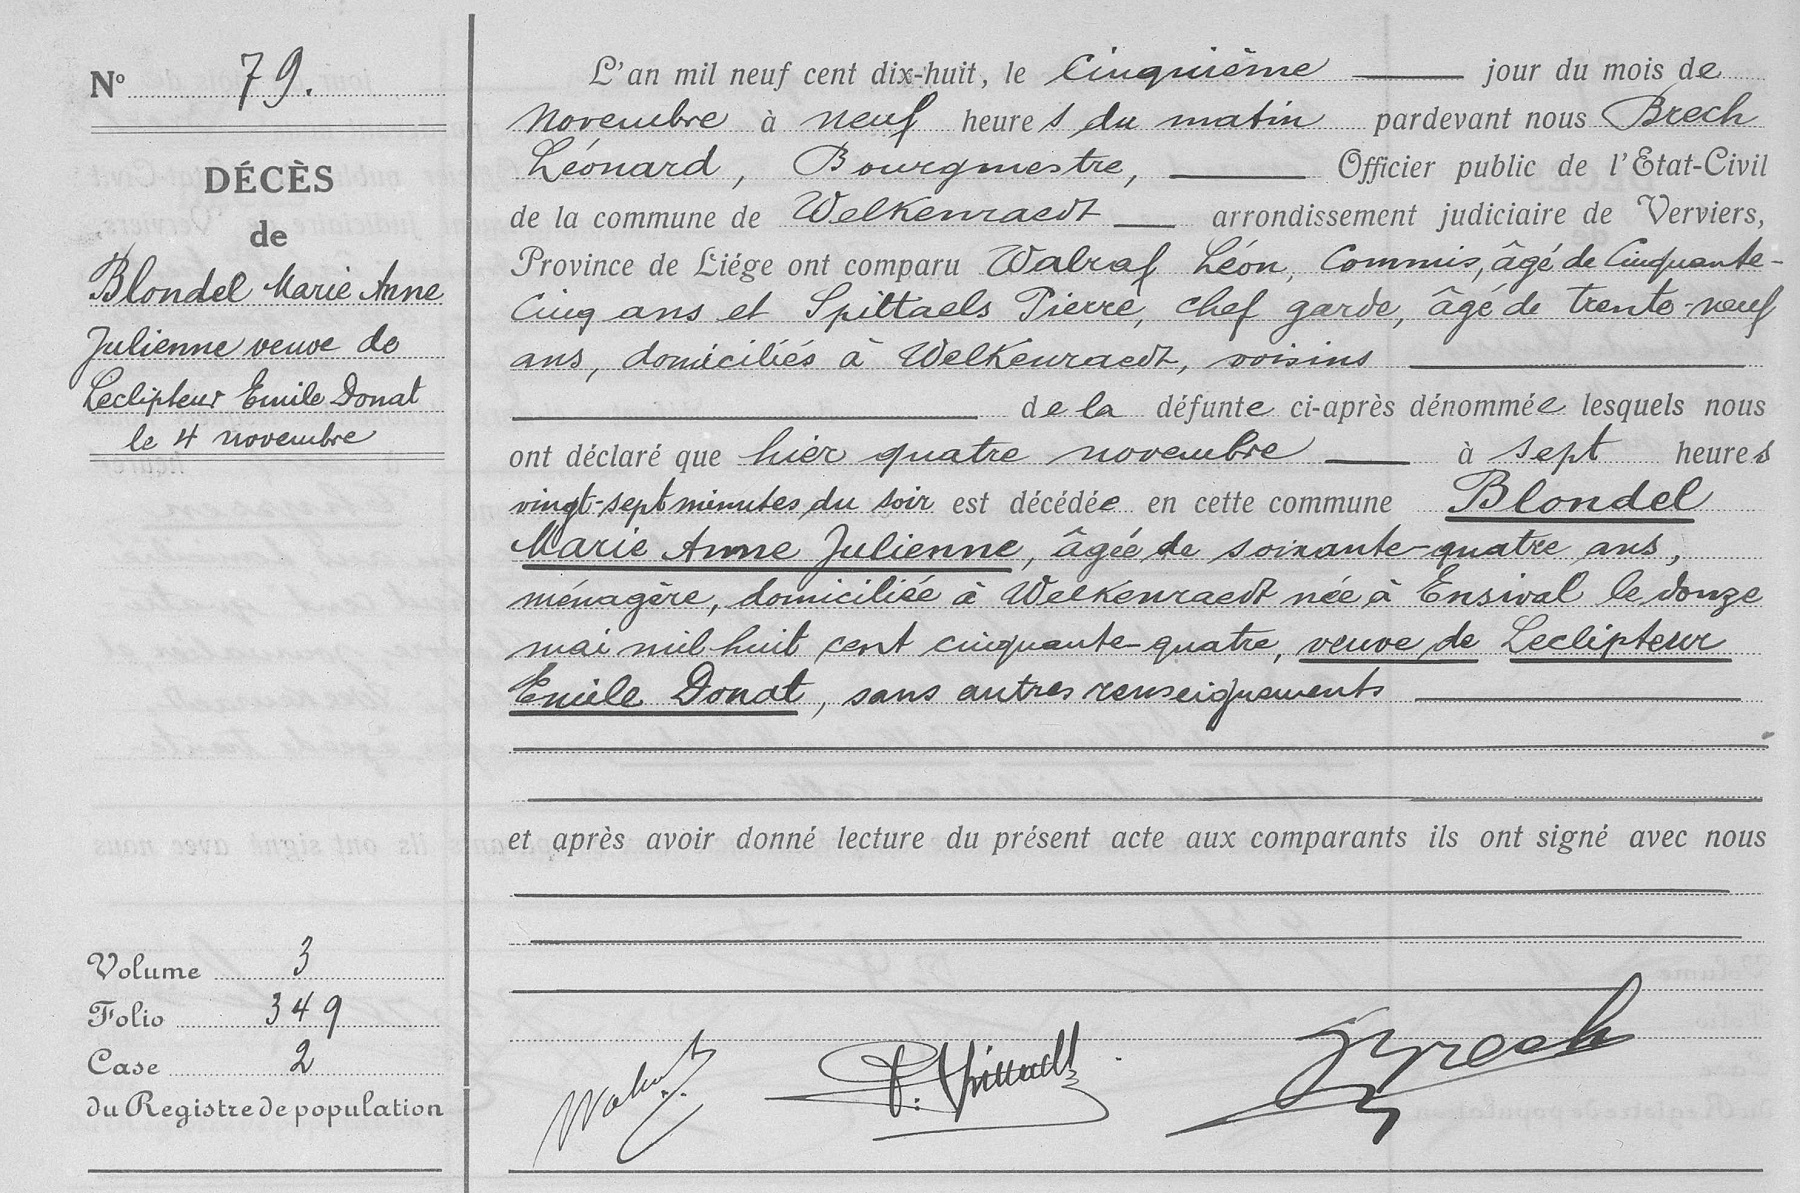 N° 79.
DÉCÈS
de
Blondel Marie Anne
Julienne veuve de
Leclipteur Emile Donat
le 4 novembre
Volume 3
Folio 349
Case 2
du Registre de population
L'an mil neuf cent dix-huit, le Cinquième jour du mois de
Novembre à neuf heures du matin pardevant nous Brech
Léonard, Bourgmestre, Officier public de l'Etat-Civil
de la commune de Welkenraedt arrondissement judiciaire de Verviers,
Province de Liége ont comparu Walraf Léon, Commis, âgé de Cinquante-
Cinq ans et Spittaels Pierre, chef garde, âgé de trente-neuf
ans, domiciliés à Welkenraedt, voisins
de la défunte ci-après dénommée lesquels nous
ont déclaré que hier quatre novembre à sept heures
vingt-sept minutes du soir est décédée en cette commune Blondel
Marie Anne Julienne, âgée de soixante-quatre ans,
ménagère, domiciliée à Welkenraedt née à Ensival le douze
mai mil huit cent cinquante-quatre, veuve de Leclipteur
Emile Donat, sans autres renseignements
et après avoir donné lecture du présent acte aux comparants ils ont signé avec nous
Brech